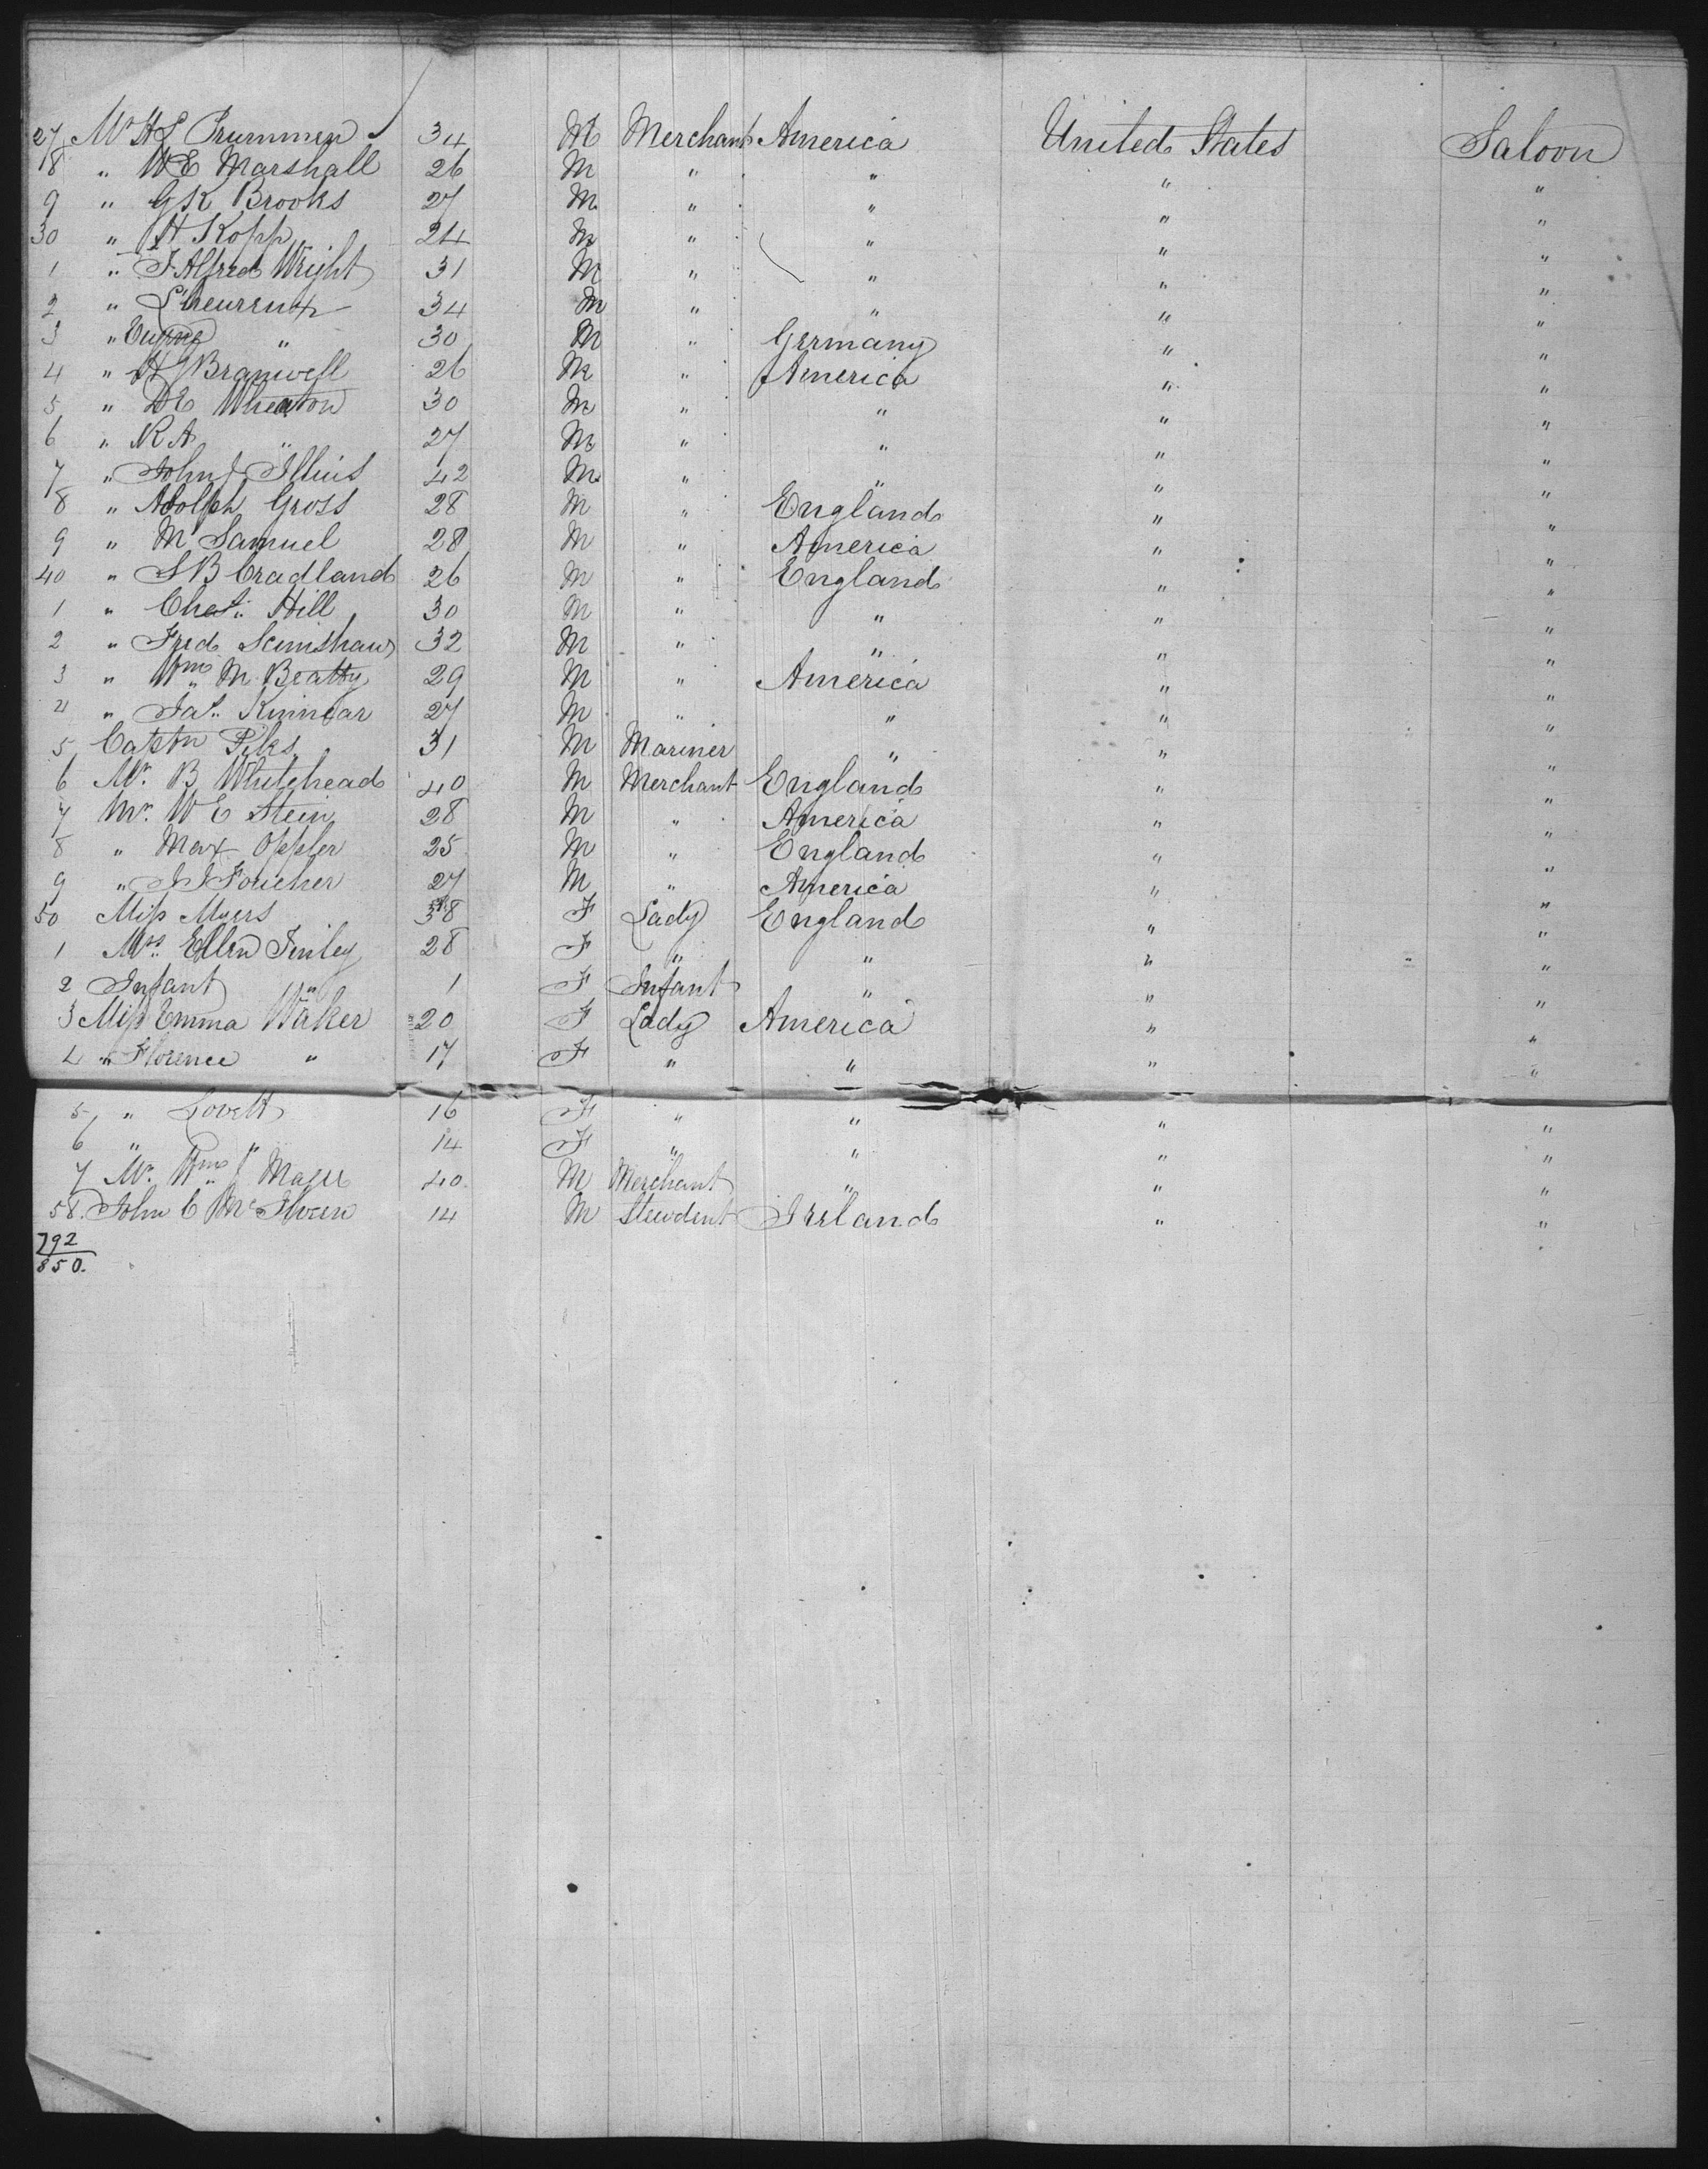 27 Mr H L Trummen 34 M Merchant America United States Saloon
28 " W E Marshall 26 M " " " "
9 " G K Brooks 27 M " " " "
30 " H Kopp 24 M " " " "
1 " J Alfred Wright 31 M " " " "
2 " L'heureux 34 M " " " "
3 " Eugene " 30 M " Germany " "
4 " H J Bramwell 26 M " America " "
5 " D E Wheaton 30 M " " " "
6 " N A " 27 M " " " "
7 " John J Illius 42 M " " " "
8 " Adolph Gross 28 M " England " "
9 " M Samuel 28 M " America " "
40 " S B Cradland 26 M " England " "
1 " Chas. Hill 30 M " " " "
2 " Fred Scrimshaw 32 M " " " "
3 " Wm M Beatty 29 M " America " "
4 " Jas. Kinnear 27 M " " " "
5 Captn 31 M Mariner " " "
6 Mr. B Whitehead 40 M Merchant England " "
7 Mr. W E Stein 28 M " America " "
8 " Max Oppler 25 M " England " "
9 " J J Foucher 27 M " America " "
50 Miss Myers 38 F Lady England " "
1 Mrs. Ellen Finley 28 F " " " "
2 Infant " 1 F Infant " " "
3 Miss Emma Waker 20 F Lady America " "
4 " Florence " 17 F " " " "
5 " Lovett 16 F " " " "
6 " " 14 F " " " "
7 Mr. Wm J Mager 40 M Merchant " " "
58. John C McIlveen 14 M Stewdent Ireland " "
792
850.